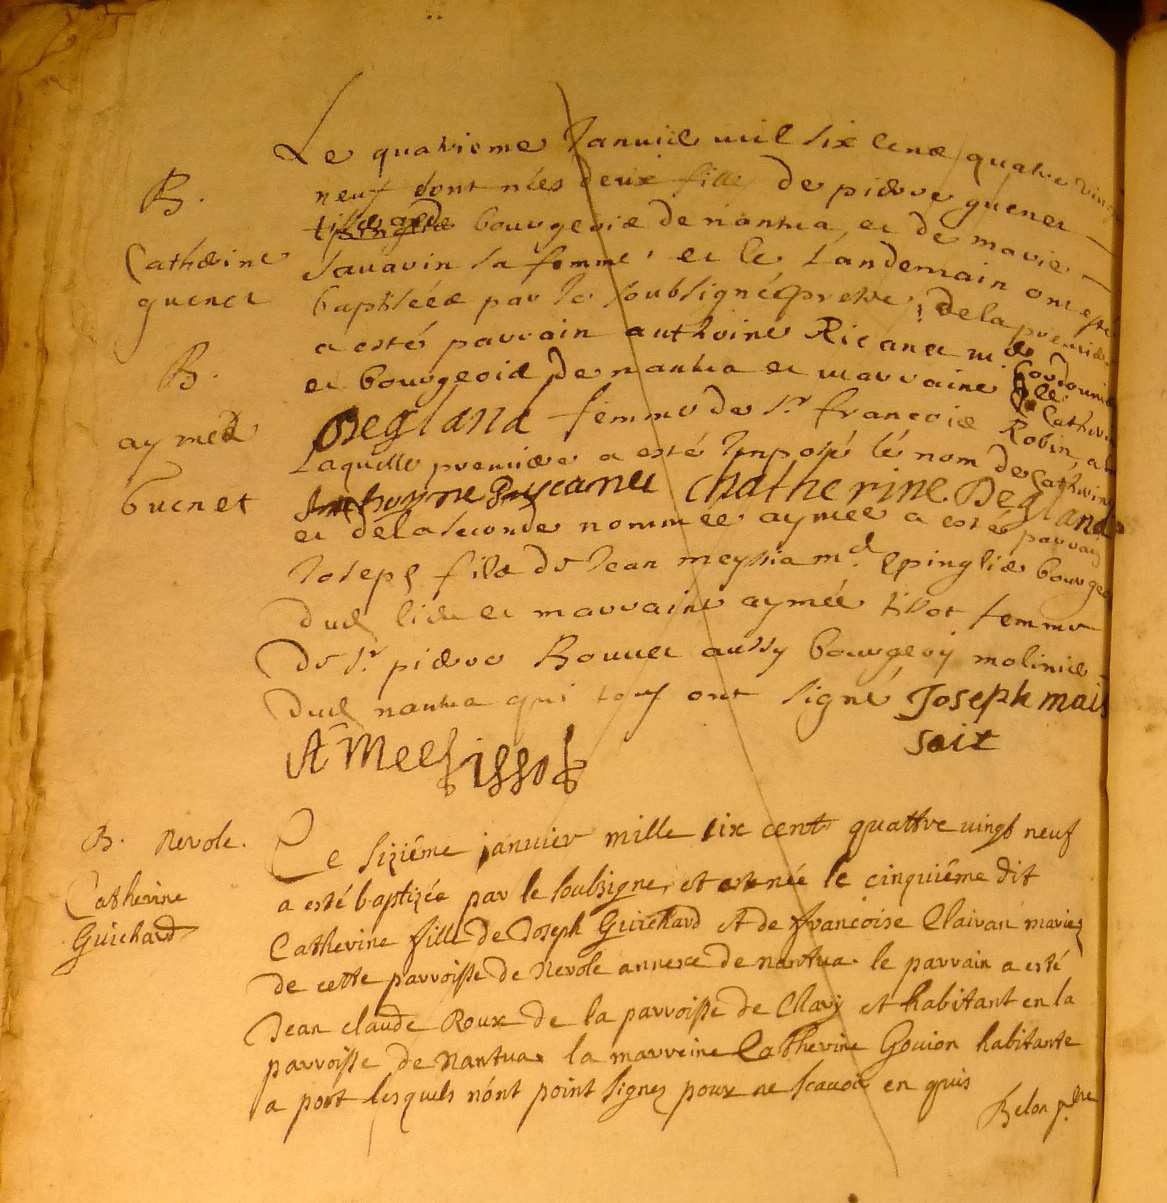 Le quatrieme Janvier mil six cens quatre vingt
B.
neuf sont nées deux filles de pierre guenet
bourgeois de nantua, et de marie
Catherine
Savarin sa femme, et le Landemain ont esté
guenet
baptisées par le soubsigné prestre, de la premiere
a esté parrain anthoine Ricanet md Cordonnier
B.
et bourgeois de nantua et marraine Catherine
aymee
Degland femme de Sr francois Robin, a
Laquelle premiere a esté Imposé le nom de Catherine
guenet
Anthoyne Riscanet Chatherine Degland
et de la seconde nommée aymée a esté parrain
Joseph fils de Jean meyssia md Epinglier bourgeois
dud lieu et marraine aymée tissot femme
de Sr pierre Bouvet aussy bourgeoy molinier
dud nantua qui tous ont signé Joseph mais
soit
AMee tissot
B. Nevole.
Ce sizième janvier mille six cent quattre vingt neuf
a esté baptizée par le soubsigne, et est née le cinquième dit
Catherine
Catherine fille de Joseph Guichard et de françoise Clairan mariez
Guichard
de cette parroisse de Nevole annexe de nantua. le parrain a esté
Jean claude Roux de la parroisse de Charij et habitant en la
parroisse de Nantua. la marreine Catherine Gouion habitante
a port lesquels n'ont point signez pour ne scavoir en quis
Belon ptre